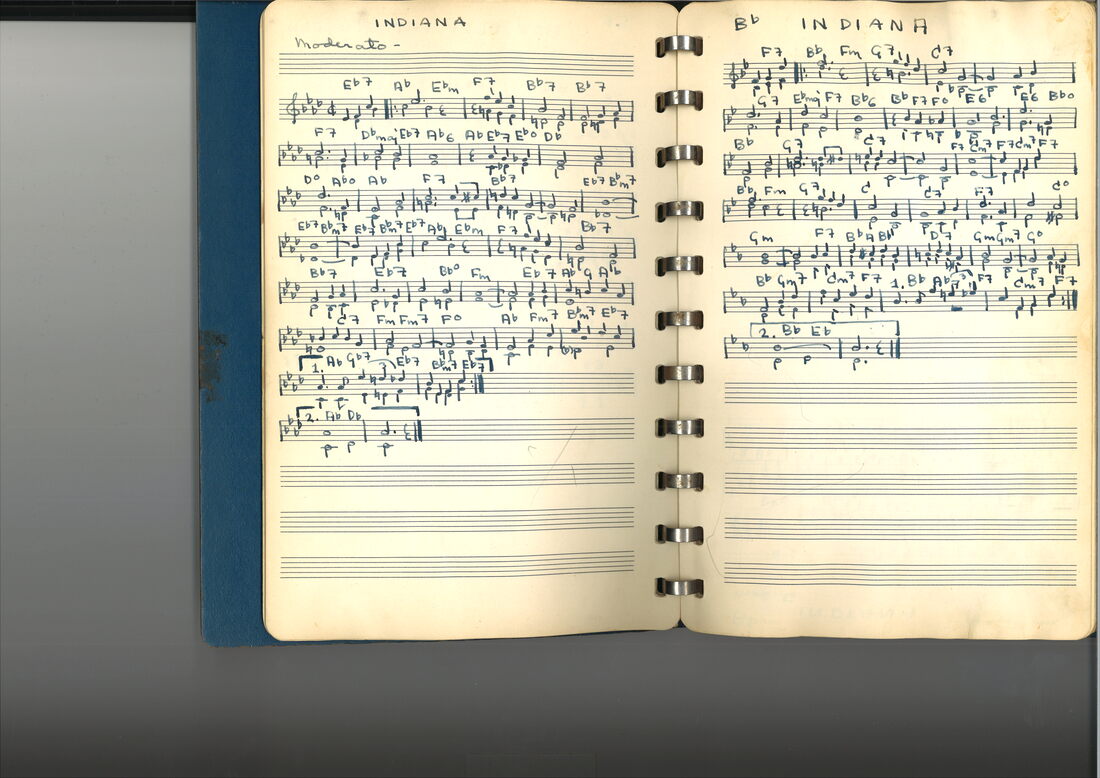 INDIANA
Moderato -
Eb7 Ab Ebm F7 Bb7 Bb7
F7 Dbmaj Eb7 Ab6 Ab Eb7 Ebo Db
Do Abo Ab F7 Bb7 Eb7 Bbm7
Eb7 Bbm7 Eb7 Bbm7 Eb7 Ab Ebm F7 Bb7
Bb7 Eb7 Bbo Fm Eb7 Ab G Ab
C7 Fm Fm7 Fo Ab Fm7 Bbm7 Eb7
1. Ab Gb7 Eb7 Bbm7 Eb7
2. Ab Db
Bb INDIANA
F7 Bb Fm G7 C7
G7 Ebmaj F7 Bb6 Bb F7 Fo E6 E6 Bbo
Bb G7 C7 F7 Cm7 F7 Cm7 F7
Bb Fm G7 C C7 F7 Co
Gm F7 Bb A Bb D7 Gm Gm7 Go
Bb Gm7 Cm7 F7 1. Bb Ab7 F7 Cm7 F7
2. Bb Eb